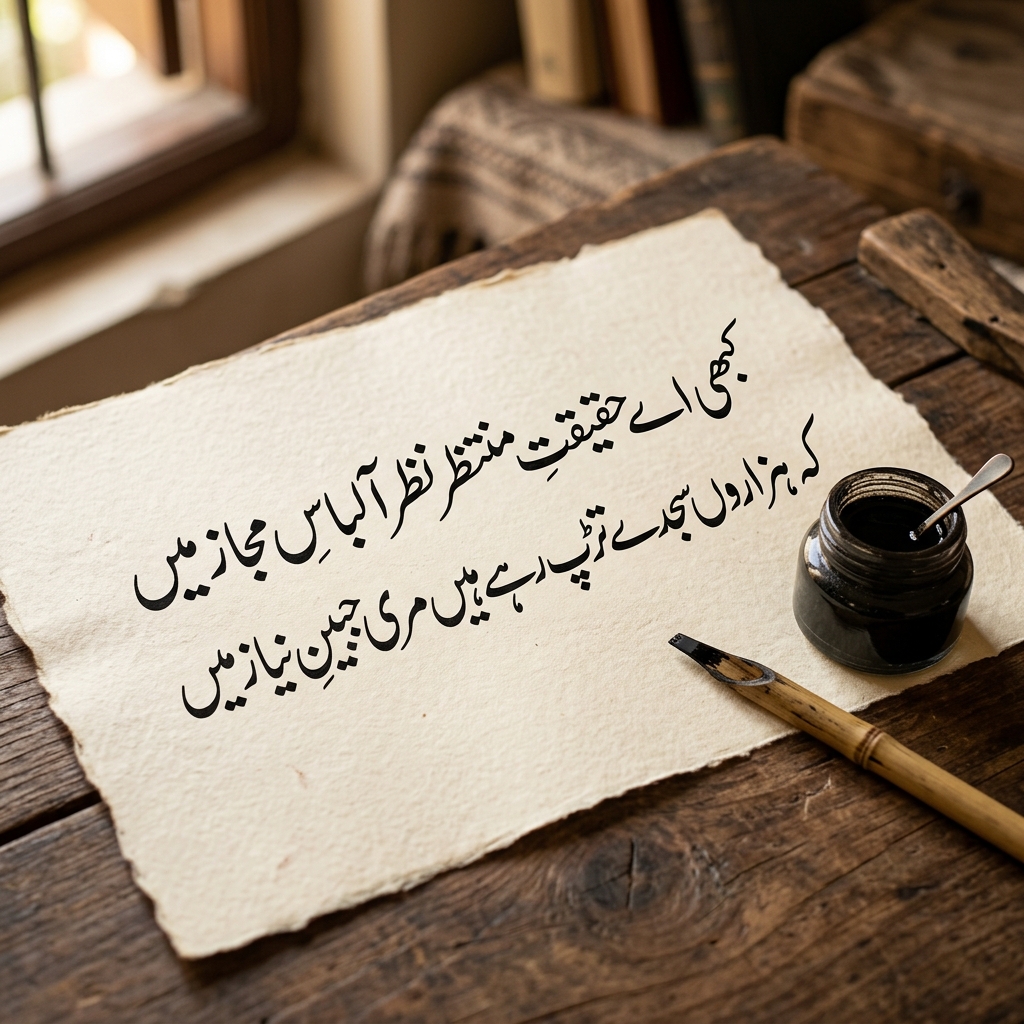 کبھی اے حقیقتِ منتظر نظر آ لباسِ مجاز میں
کہ ہزاروں سجدے تڑپ رہے ہیں مری جبینِ نیاز میں